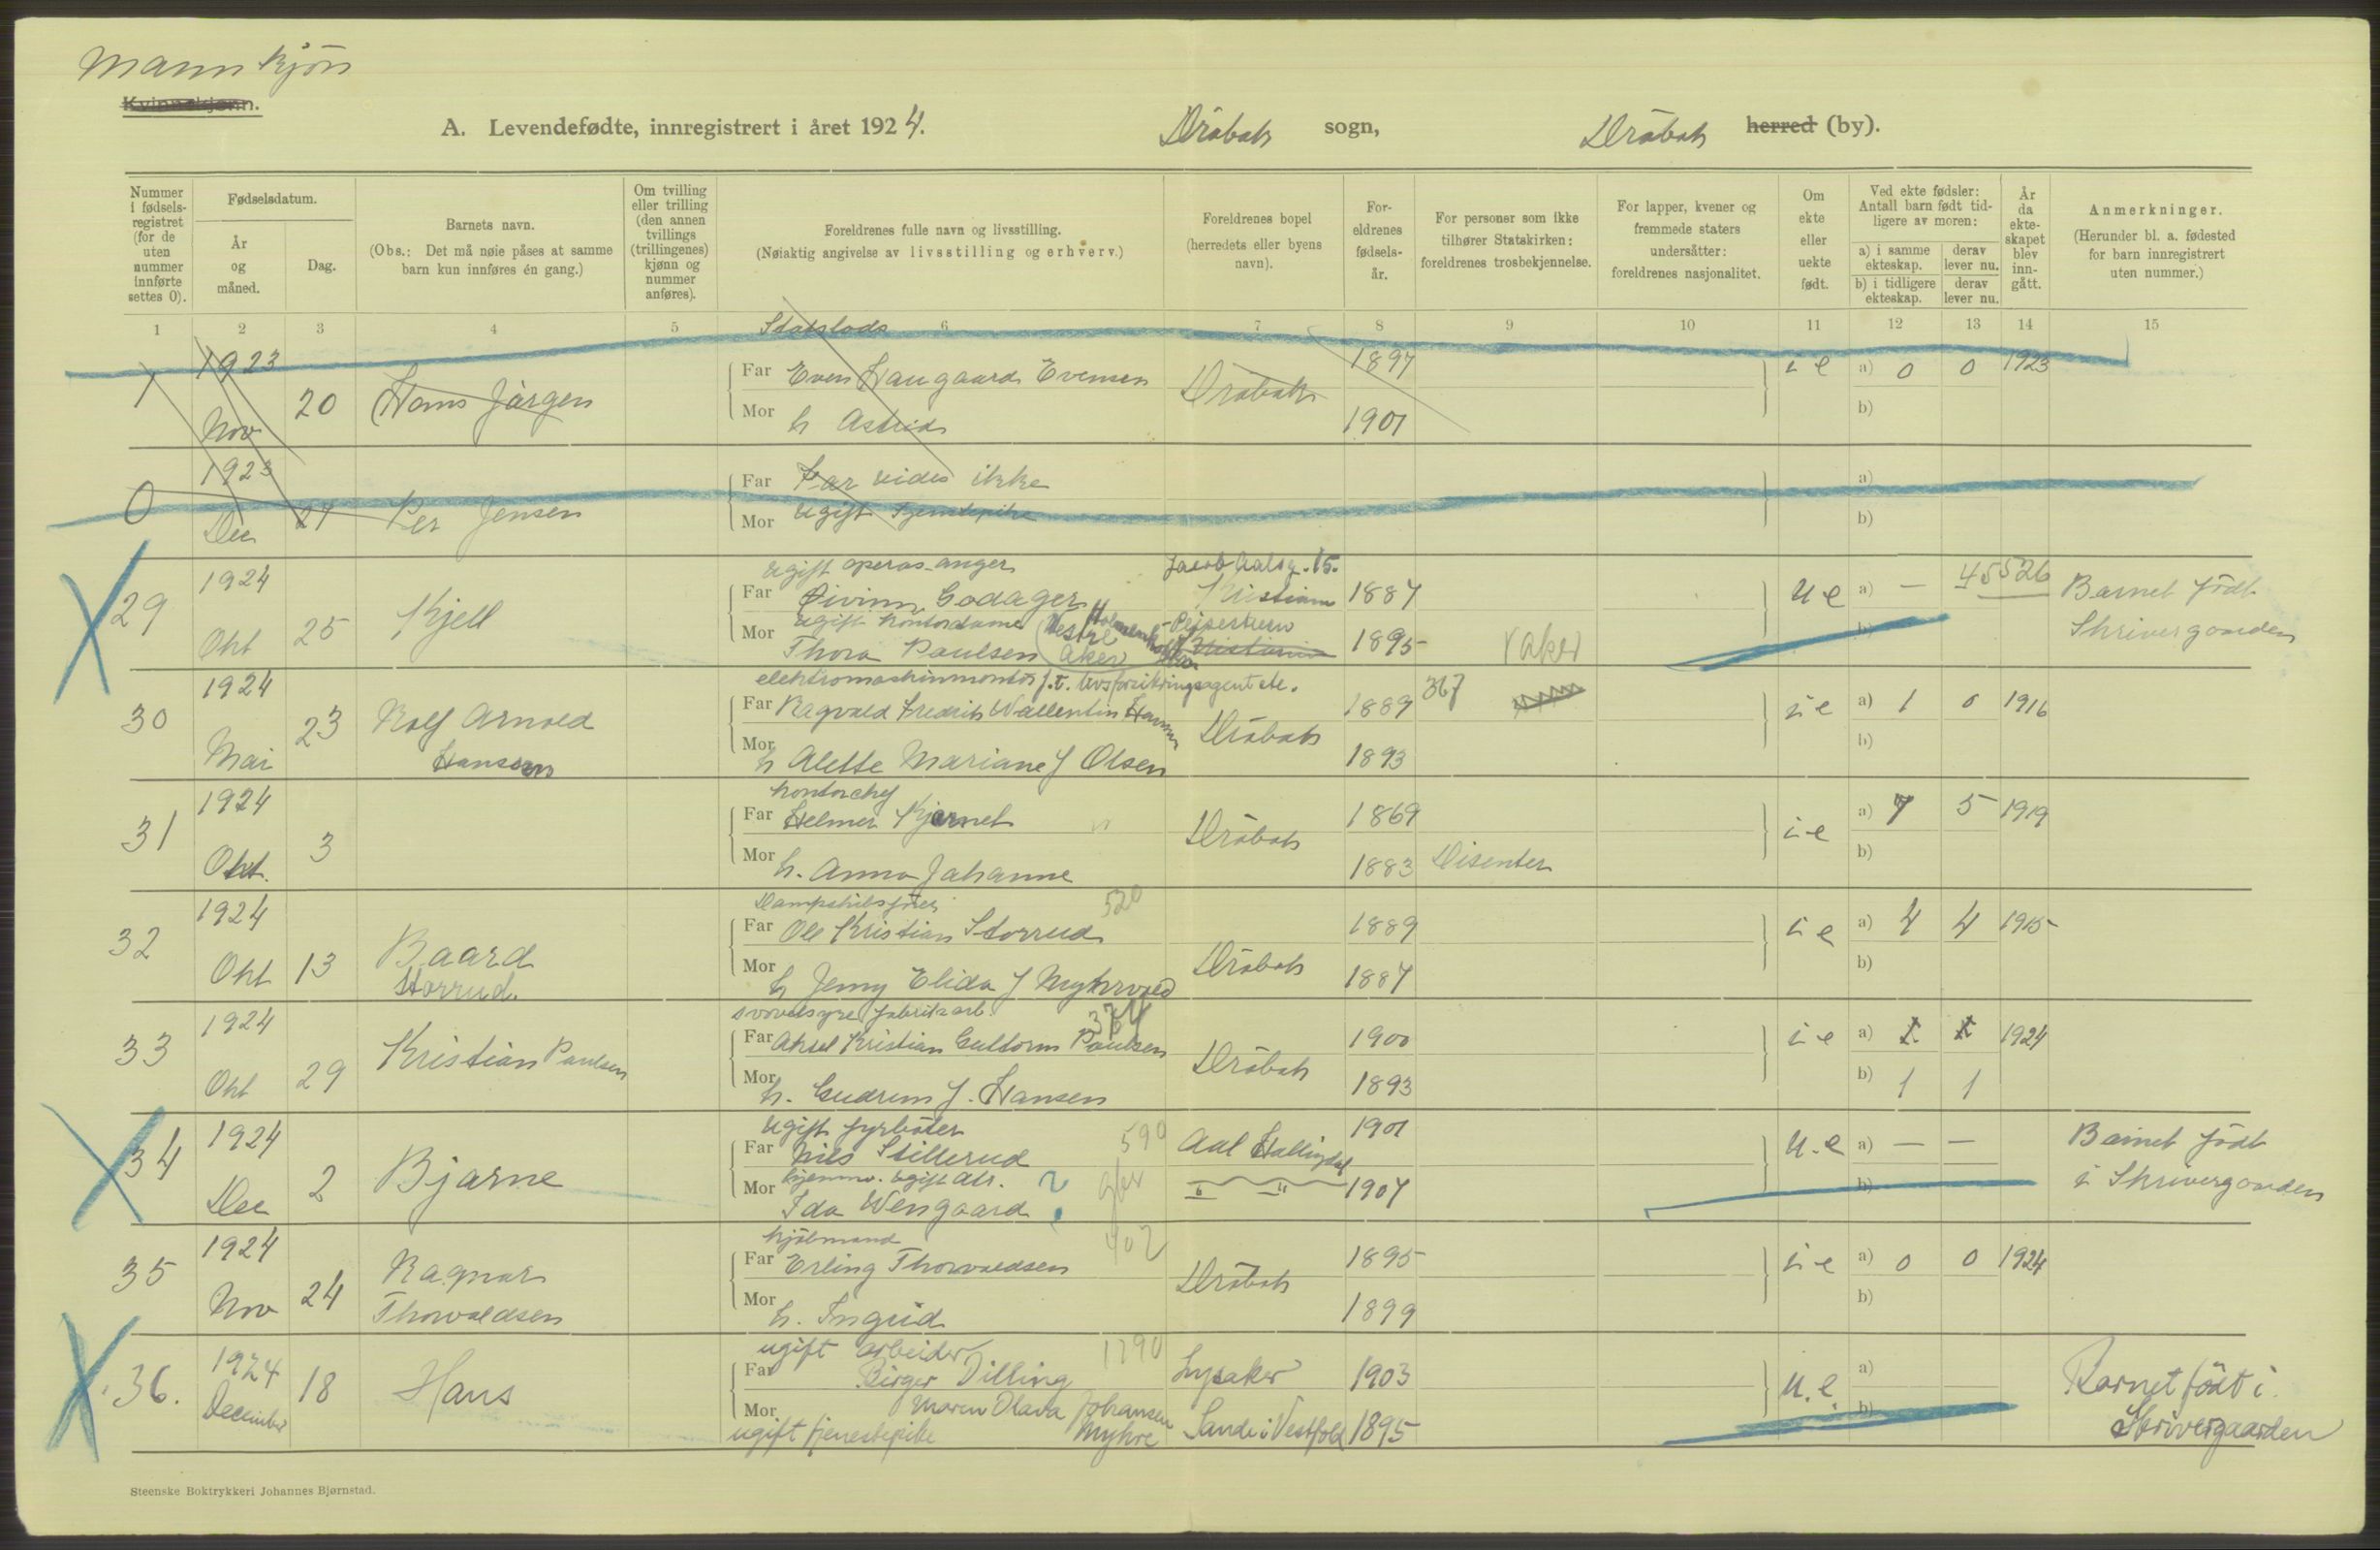 Mannkjön
Kvinnekjønn.
A. Levendefødte, innregistrert i året 1924. Dröbak sogn, Dröbak herred (by).
Nummer i fødsels-registret (for de uten nummer innførte settes 0).
Fødselsdatum.
År og måned.
Dag.
Barnets navn.
(Obs.: Det må nøie påses at samme barn kun innføres én gang.)
Om tvilling eller trilling (den annen tvillings (trillingenes) kjønn og nummer anføres).
Foreldrenes fulle navn og livsstilling.
(Nøiaktig angivelse av livsstilling og erhverv.)
Foreldrenes bopel (herredets eller byens navn).
For-eldrenes fødsels-år.
For personer som ikke tilhører Statskirken: foreldrenes trosbekjennelse.
For lapper, kvener og fremmede staters undersåtter: foreldrenes nasjonalitet.
Om ekte eller uekte født.
Ved ekte fødsler: Antall barn født tid-ligere av moren:
a) i samme ekteskap.
derav lever nu.
b) i tidligere ekteskap.
derav lever nu.
År da ekte-skapet blev inn-gått.
Anmerkninger.
(Herunder bl. a. fødested for barn innregistrert uten nummer.)
1 2 3 4 5 6 7 8 9 10 11 12 13 14 15
Statslods
1 1923 Nov 20 Hans Jörgen Far Even Haugaard Evensen Dröbak 1897 i e a) 0 0 1923
Mor h Astrid 1901 b)
0 1923 Dec 21 Per Jensen Far Far vides ikke a)
Mor ugift tjenestepike b)
ugift operasanger Jacob Aalsg. 15.
29 1924 Okt 25 Kjell Far Öivinn Godager Kristiania 1887 u e a) — 45526 Barnet födt
ugift kontordame
Mor Thora Paulsen Vestre Aker Kristiania 1895 V Aker b) Skrivergaarden
elektromaskinmontör f.t. livsforsikringsagent etc.
30 1924 Mai 23 Rolf Arnold Hanssen Far Ragvald Fredrik Wallentin Hansen Dröbak 1889 367 i e a) 1 0 1916
Mor h Alette Mariane f Olsen 1893 b)
kontorchef
31 1924 Okt. 3 Far Helmer Kjernet Dröbak 1869 i e a) 7 5 1919
Mor h. Anna Johanne 1883 Disenter b)
Dampskibsförer 520
32 1924 Okt 13 Baard Storrud. Far Ole Kristian Storrud Dröbak 1889 i e a) 4 4 1915
Mor h Jenny Elida f Myhrvold 1887 b)
svovelsyrefabrikarb. 364
33 1924 Okt 29 Kristian Paulsen Far Aksel Kristian Guttorm Paulsen Dröbak 1900 i e a) 1924
Mor h. Gudrun f. Hansen 1893 b) 1 1
ugift fyrböter 590
34 1924 Dec 2 Bjarne Far Nils Stillerud Aal Hallingdal 1901 u.e a) — — Barnet födt
hjemmev. ugift dtr. ?
Mor Ida Wengaard — " — 1907 b) i Skrivergaarden
kjölmand 402
35 1924 Nov 24 Ragnar Thorvaldsen Far Erling Thorvaldsen Dröbak 1895 i e a) 0 0 1924
Mor h. Ingrid 1899 b)
ugift arbeider 1290
36. 1924 December 18 Hans Far Birger Dilling Lysaker 1903 u.e. a) Barnet födt i
Mor Maren Olava Johansen Myhre Sande i Vestfold 1895 b) Skrivergaarden
ugift tjenestepike
Steenske Boktrykkeri Johannes Bjørnstad.